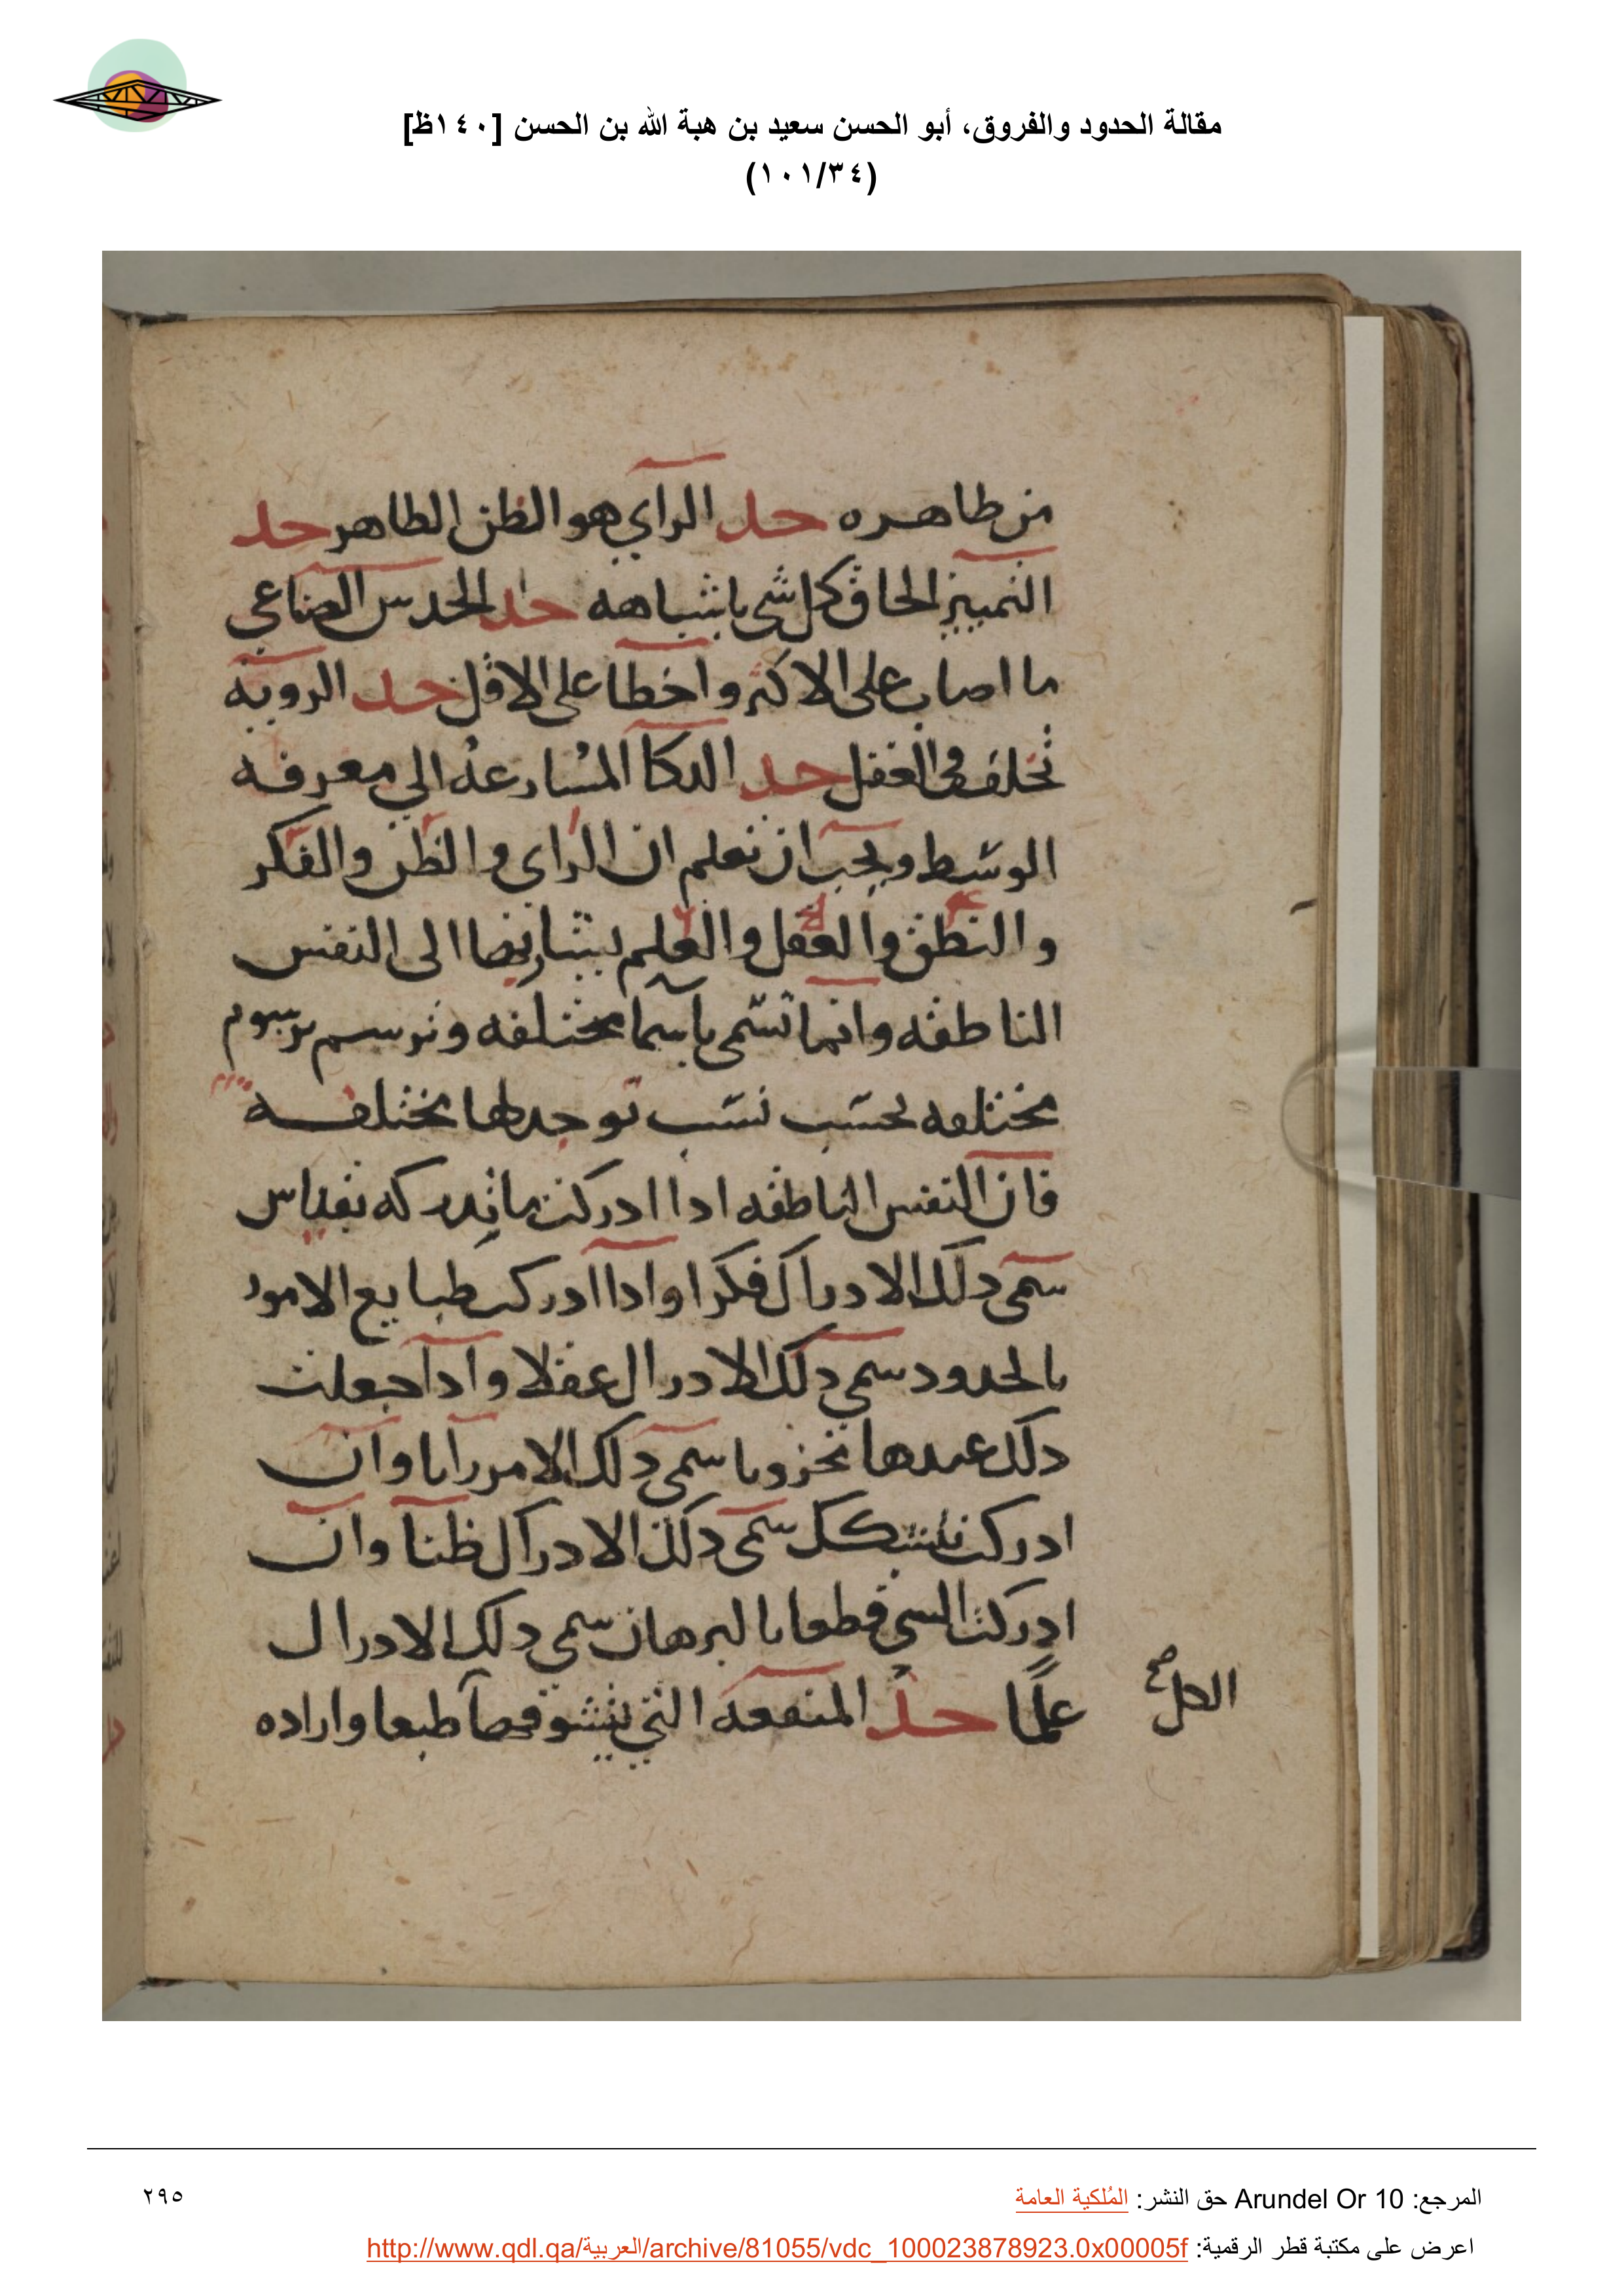 مقالة الحدود والفروق، أبو الحسن سعيد بن هبة الله بن الحسن [١٤٠ظ]
(١٠١/٣٤)
من طاهره حد الرآي هو الظن الطاهر حد
التمييز الحاق كل شي باشباهه حد الحدس الصناعي
ما اصاب على الاكثر واخطا على الاقل حد الرويه
تخلف في العقل حد الدكآ المسارعه الي معرفه
الوسط ويجب ان نعلم ان الراى والظن والفكر
والنطق والعقل والعلم يشار بها الى النفس
الناطقه وانما تسمى باسما مختلفه وترسم برسوم
مختلفه بحسب نسب توجد لها مختلفه
فان النفس الناطقه ادا ادركت ما تدركه بقياس
سمى دلك الادراك فكرا وادا ادركت طبايع الامور
بالحدود سمى دلك الادراك عقلا وادا جعلت
دلك عندها مخزونا سمى دلك الامر رايا وان
ادركت بتشكك سمى دلك الادراك ظنا وان
ادركت السي قطعا بالبرهان سمى دلك الادراك
علمًا حد المنفعه التي يتشوقها طبعا واراده
الكل
المرجع: Arundel Or 10 حق النشر: المُلكية العامة
٢٩٥
اعرض على مكتبة قطر الرقمية: http://www.qdl.qa/العربية/archive/81055/vdc_100023878923.0x00005f